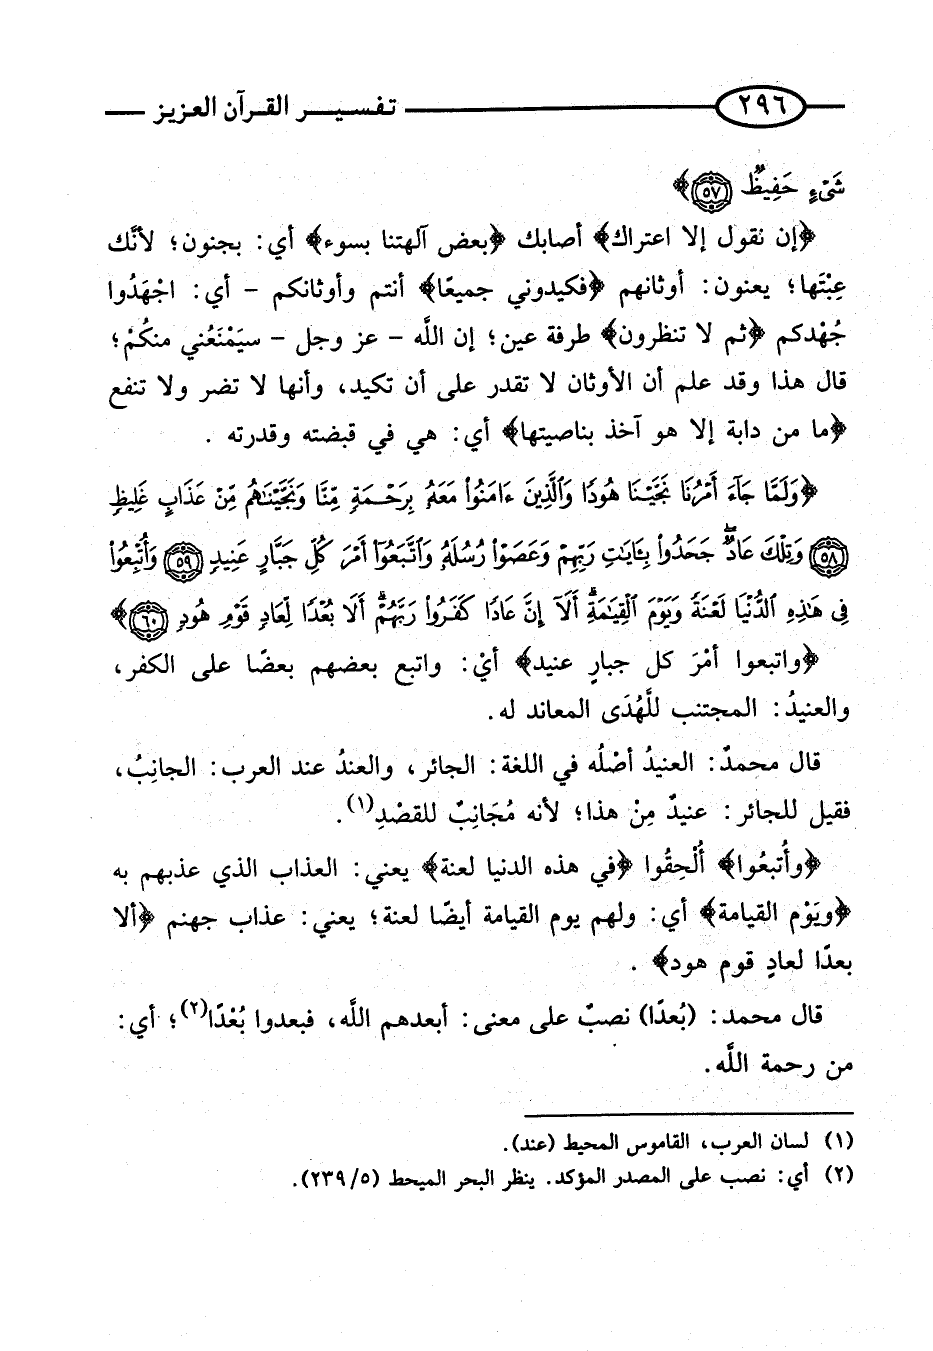 ٢٩٦ تفسير القرآن العزيز
شَىْءٍ حَفِيظٌ ﴿٥٧﴾﴾
﴿إن نقول إلا اعتراك﴾ أصابك ﴿بعض آلهتنا بسوء﴾ أي: بجنون؛ لأنَّك
عِبْتَها؛ يعنون: أوثانهم ﴿فكيدوني جميعًا﴾ أنتم وأوثانكم – أي: اجْهَدُوا
جُهْدكم ﴿ثم لا تنظرون﴾ طرفة عين؛ إن اللَّه – عز وجل – سيَمْنَعُني منكُمْ؛
قال هذا وقد علم أن الأوثان لا تقدر على أن تكيد، وأنها لا تضر ولا تنفع
﴿ما من دابة إلا هو آخذ بناصيتها﴾ أي: هي في قبضته وقدرته .
﴿وَلَمَّا جَآءَ أَمْرُنَا نَجَّيْنَا هُودًا وَٱلَّذِينَ ءَامَنُوا۟ مَعَهُۥ بِرَحْمَةٍ مِّنَّا وَنَجَّيْنَٰهُم مِّنْ عَذَابٍ غَلِيظٍ
﴿٥٨﴾ وَتِلْكَ عَادٌۖ جَحَدُوا۟ بِـَٔايَٰتِ رَبِّهِمْ وَعَصَوْا۟ رُسُلَهُۥ وَٱتَّبَعُوٓا۟ أَمْرَ كُلِّ جَبَّارٍ عَنِيدٍ ﴿٥٩﴾ وَأُتْبِعُوا۟
فِى هَٰذِهِ ٱلدُّنْيَا لَعْنَةً وَيَوْمَ ٱلْقِيَٰمَةِۗ أَلَآ إِنَّ عَادًا كَفَرُوا۟ رَبَّهُمْۗ أَلَا بُعْدًا لِّعَادٍ قَوْمِ هُودٍ ﴿٦٠﴾﴾
﴿واتبعوا أمْرَ كل جبارٍ عنيد﴾ أيْ: واتبع بعضهم بعضًا على الكفر،
والعنيدُ: المجتنب للَّهُدَى المعاند له.
قال محمدٌ: العنيدُ أصْلُه في اللغة: الجائر، والعندُ عند العرب: الجانِبُ،
فقيل للجائر: عنيدٌ مِنْ هذا؛ لأنه مُجَانِبٌ للقصْدِ(١).
﴿وأُتبعُوا﴾ أُلْحِقُوا ﴿في هذه الدنيا لعنة﴾ يعني: العذاب الذي عذبهم به
﴿ويَوْم القيامة﴾ أي: ولهم يوم القيامة أيضًا لعنة؛ يعني: عذاب جهنم ﴿ألا
بعدًا لعادٍ قوم هود﴾ .
قال محمد: (بُعدًا) نصبٌ على معنى: أبعدهم اللَّه، فبعدوا بُعْدًا(٢)؛ أي:
من رحمة اللَّه.
(١) لسان العرب، القاموس المحيط (عند).
(٢) أي: نصب على المصدر المؤكد. ينظر البحر الميحط (٢٣٩/٥).